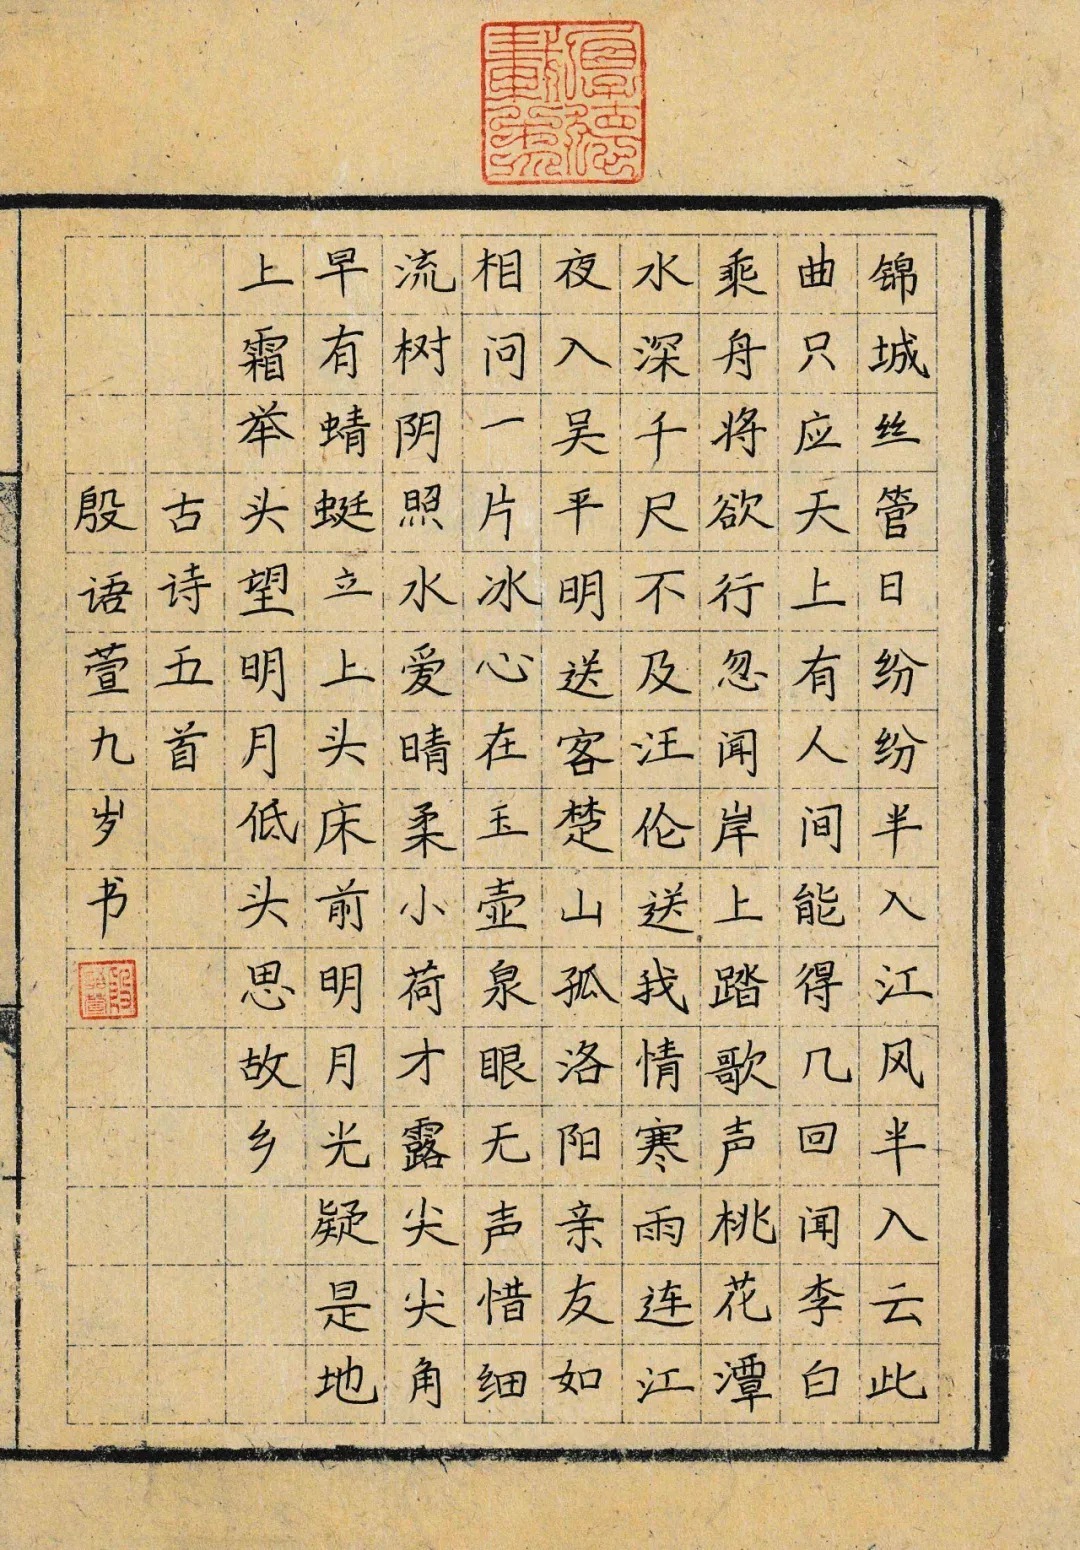 厚德载物
锦城丝管日纷纷半入江风半入云此
曲只应天上有人间能得几回闻李白
乘舟将欲行忽闻岸上踏歌声桃花潭
水深千尺不及汪伦送我情寒雨连江
夜入吴平明送客楚山孤洛阳亲友如
相问一片冰心在玉壶泉眼无声惜细
流树阴照水爱晴柔小荷才露尖尖角
早有蜻蜓立上头床前明月光疑是地
上霜举头望明月低头思故乡
古诗五首
殷语萱九岁书
殷语萱